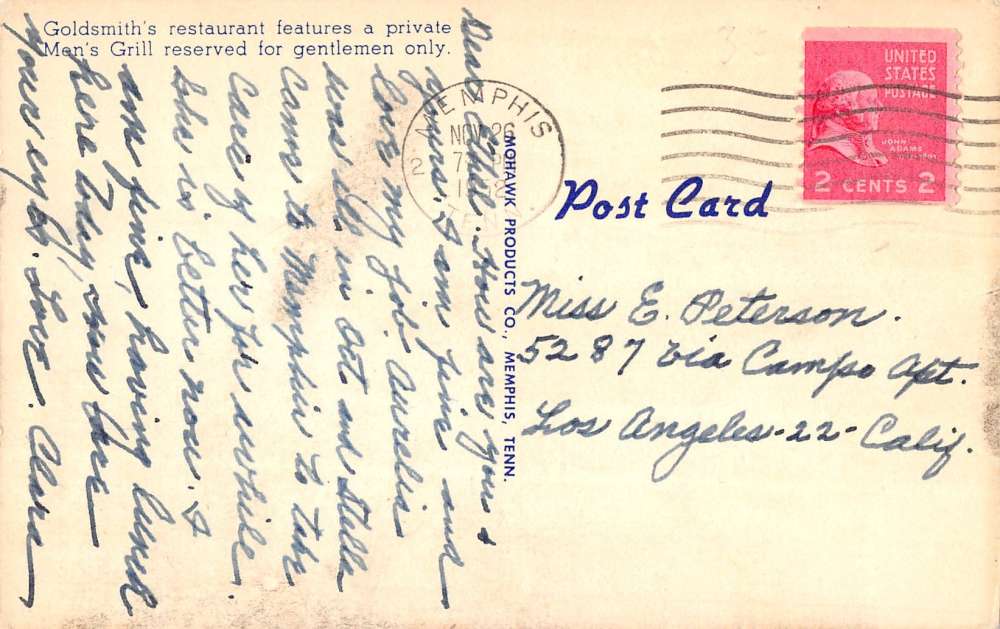 Goldsmith's restaurant features a private
Men's Grill reserved for gentlemen only.
Dear Ethel. How are you &
yours. I am fine and
love my job. Aurelia
was ill in Oct and Stella
came to Memphis to take
care of her for awhile.
She is better now. I
am fine, having lunch
here today, sure have
your eyes. Love. Clara
MEMPHIS
NOV 26
7 PM
2
TENN.
MOHAWK PRODUCTS CO., MEMPHIS, TENN.
UNITED
STATES
POSTAGE
JOHN
ADAMS
2 CENTS 2
Post Card
Miss E. Peterson.
5287 Via Campo Apt.
Los Angeles-22-Calif.